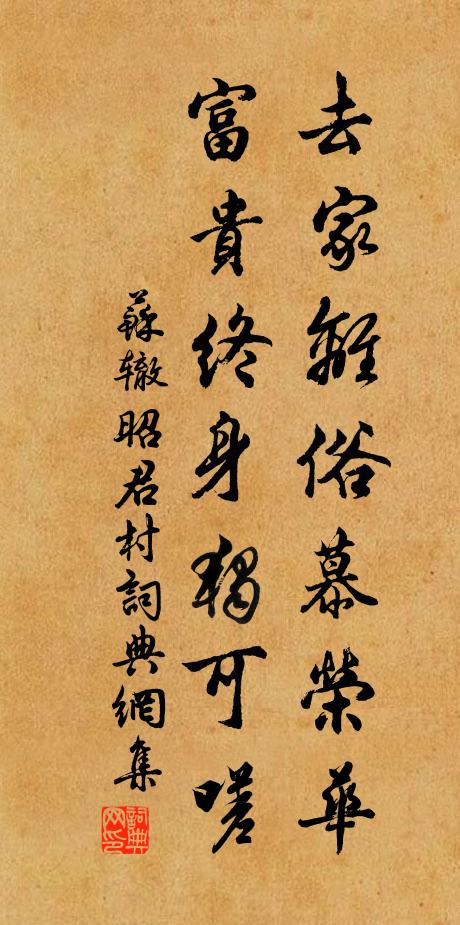 去家離俗慕榮華
富貴終身獨可嗟
蘇辙昭君村詞典網集
詞典网印